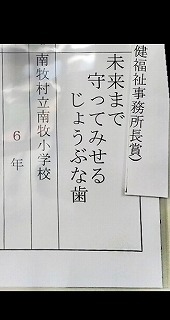 健福祉事務所長賞）
未来まで
守ってみせる
じょうぶな歯
南牧村立南牧小学校
6年